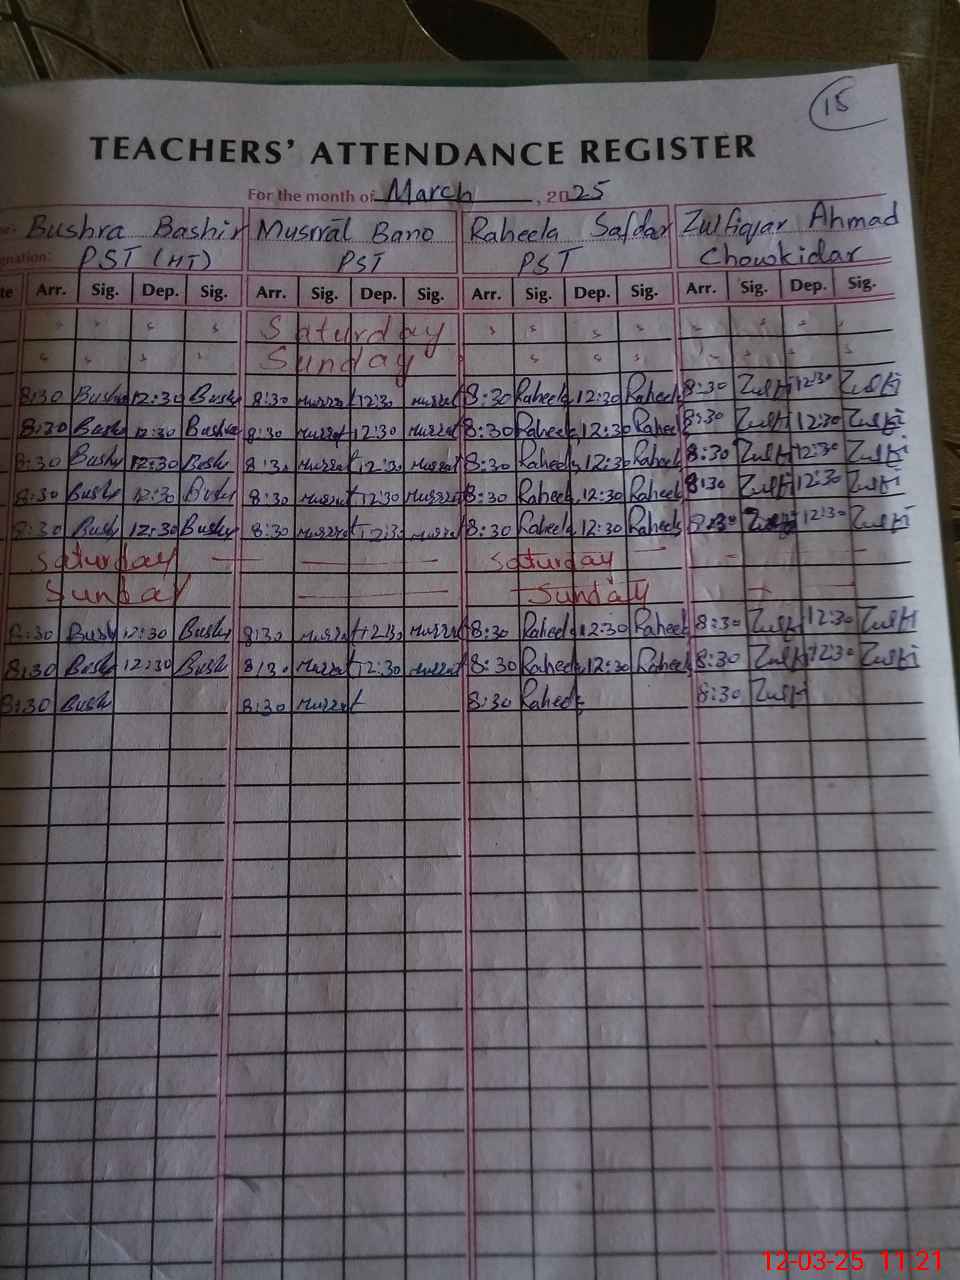 15
TEACHERS' ATTENDANCE REGISTER
For the month of March, 2025
Bushra Bashir Musrrat Bano Raheela Safdar Zulfiqar Ahmad
gnation: PST (HT) PST PST Chowkidar
te Arr. Sig. Dep. Sig. Arr. Sig. Dep. Sig. Arr. Sig. Dep. Sig. Arr. Sig. Dep. Sig.
Saturday
Sunday
8:30 Bushra 12:30 Bush 8:30 Musrrat 12:30 Musrrat 8:30 Raheela 12:30 Raheela 8:30 Zulfi 12:30 Zulfi
8:30 Bush 12:30 Bushra 8:30 Musrrat 12:30 Musrrat 8:30 Raheela 12:30 Raheela 8:30 Zulfi 12:30 Zulfi
8:30 Bush 12:30 Bush 8:30 Musrrat 12:30 Musrrat 8:30 Raheela 12:30 Raheela 8:30 Zulfi 12:30 Zulfi
8:30 Bush 12:30 8:30 Musrrat 12:30 Musrrat 8:30 Raheela 12:30 Raheela 8:30 Zulfi 12:30 Zulfi
8:30 Bush 12:30 Bush 8:30 Musrrat 12:30 Musrrat 8:30 Raheela 12:30 Raheela 8:30 12:30 Zulfi
Saturday Saturday
Sunday Sunday
8:30 Bush 12:30 Bush 8:30 Musrrat 12:30 Musrrat 8:30 Raheela 12:30 Raheela 8:30 Zulfi 12:30 Zulfi
8:30 Bush 12:30 Bush 8:30 Musrrat 12:30 Musrrat 8:30 Raheela 12:30 Raheela 8:30 Zulfi 12:30 Zulfi
8:30 Bush 8:30 Musrrat 8:30 Raheela 8:30 Zulfi
12-03-25 11:21